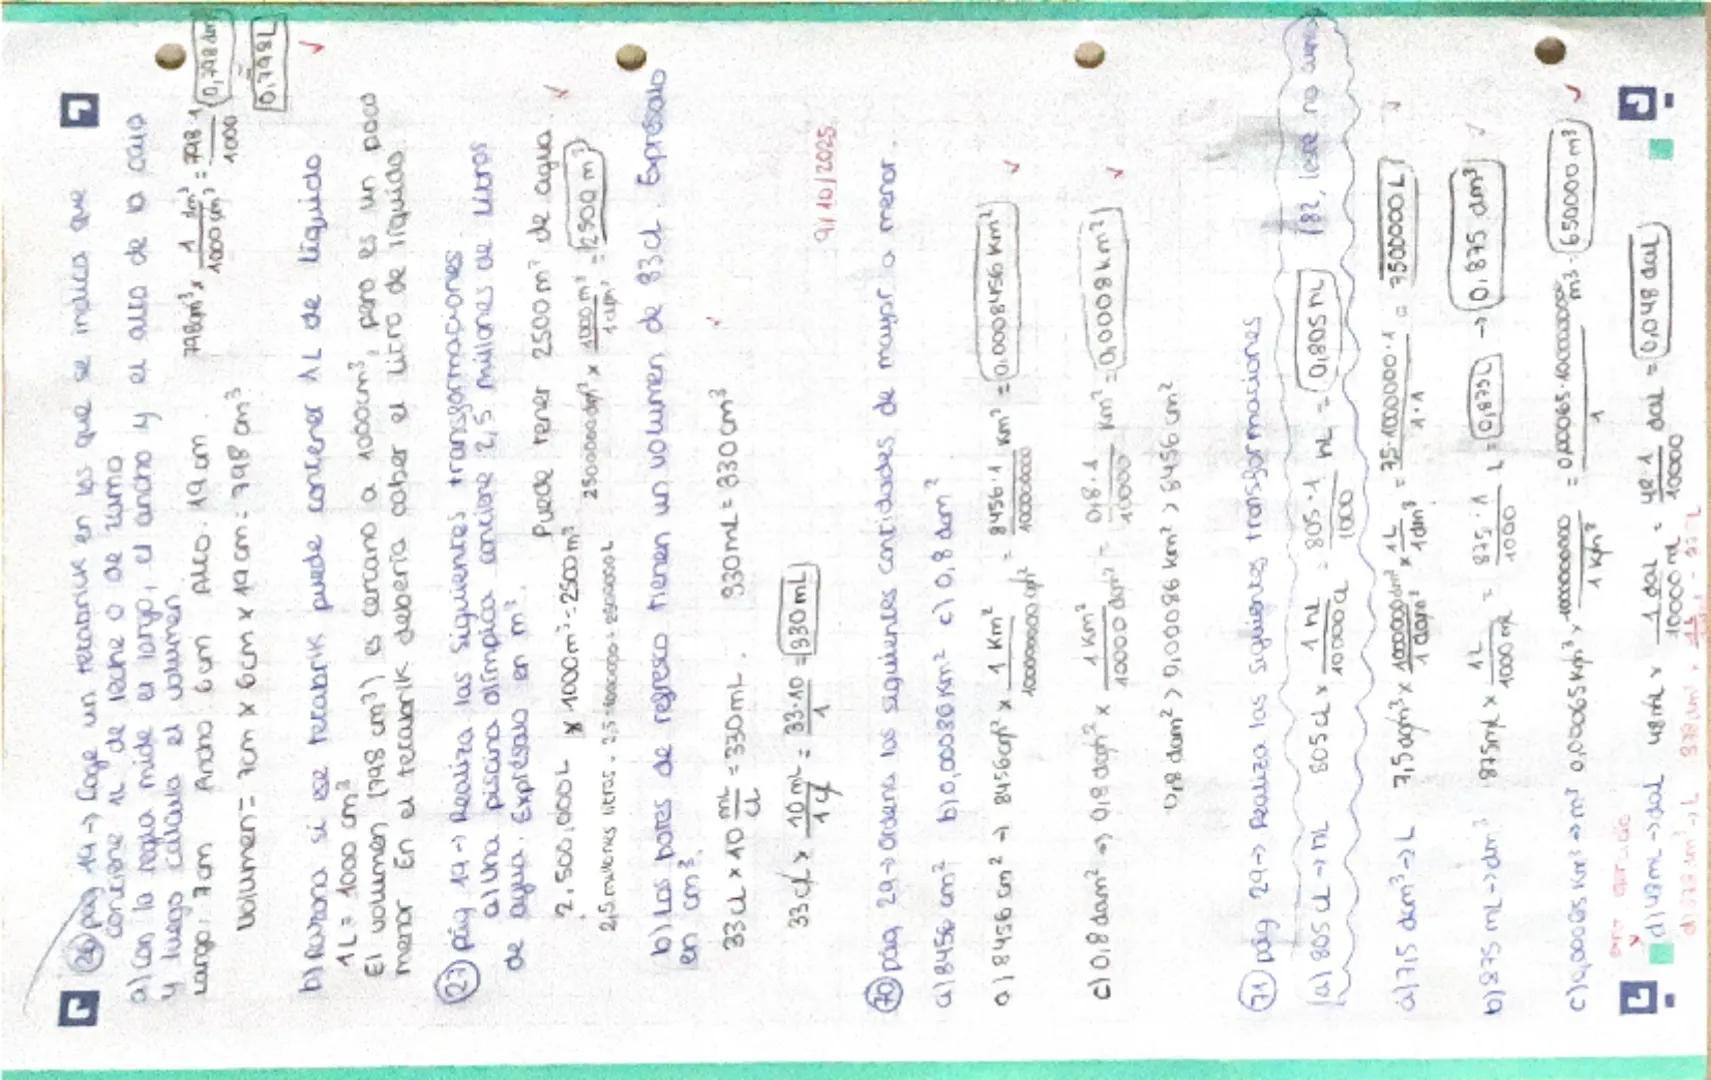 26 pág 14 -> Coge un tetrabrik en los que se indica que
contiene 1L de leche o de zumo
a) Con la regla mide el largo, el ancho y el alto de la caja
y luego calcula el volumen
Largo: 7cm Ancho 6 cm Alto: 19 cm 798cm³ x 1 dm³/1000 cm³ = 798·1/1000 0,798 dm³
Volumen = 7cm x 6cm x 19 cm = 798 cm³ 0,798L
b) Razona si ese tetrabrik puede contener 1L de líquido
1L = 1000 cm³
El volumen (798 cm³) es cercano a 1000cm³, pero es un poco
menor. En el tetrabrik debería caber el litro de líquido.
27 pág 14 -> Realiza las siguientes transformaciones
a) Una piscina olímpica contiene 2,5 millones de litros
de agua. Exprésalo en m³. Puede tener 2500 m³ de agua
2.500.000L x 1000m³ = 2500m³
2,5 millones litros = 2,5·1000000 = 2500000L 2500000dm³ x 1000 m³/1 dm³ = 2500 m³
b) Los botes de refresco tienen un volumen de 33cl Exprésalo
en cm³.
33cL x 10 mL/cL = 330mL. 330mL = 330cm³
33cL x 10 mL/1 cL = 33·10/1 = 330 mL
9/10/2025
70 pág 29 -> Ordena las siguientes cantidades de mayor a menor.
a) 8456 cm² b) 0,00086 Km² c) 0,8 dam²
a) 8456 cm² -> 8456cm² x 1 Km²/10000000000 cm² = 8456·1/10000000 Km² = 0,0008456 Km²
c) 0,8 dam² -> 0,8 dam² x 1 Km²/10000 dam² = 0,8·1/10000 Km² = 0,00008 km²
0,8 dam² > 0,00086 km² > 8456 cm²
71 pág 29 -> Realiza las siguientes transformaciones
a) 805 cL -> hL 805cL x 1 hL/10000cL = 805·1/1000 hL = 0,805 hL
a) 7,5 dam³ -> L 7,5 dam³ x 1000000dm³/1 dam³ x 1L/1dm³ = 75·1000000·1/1·1 = 7500000 L
b) 875 mL -> dm³ 875mL x 1L/1000 mL = 875·1/1000 L = 0,875L -> 0,875 dm³
c) 0,00065 Km³ -> m³ 0,00065Km³ x 1000000000/1 Km³ = 0,00065·1000000000/1 m³ = 650000 m³
d) 48mL -> daL 48mL x 1 daL/10000 mL = 48·1/10000 daL = 0,048 daL